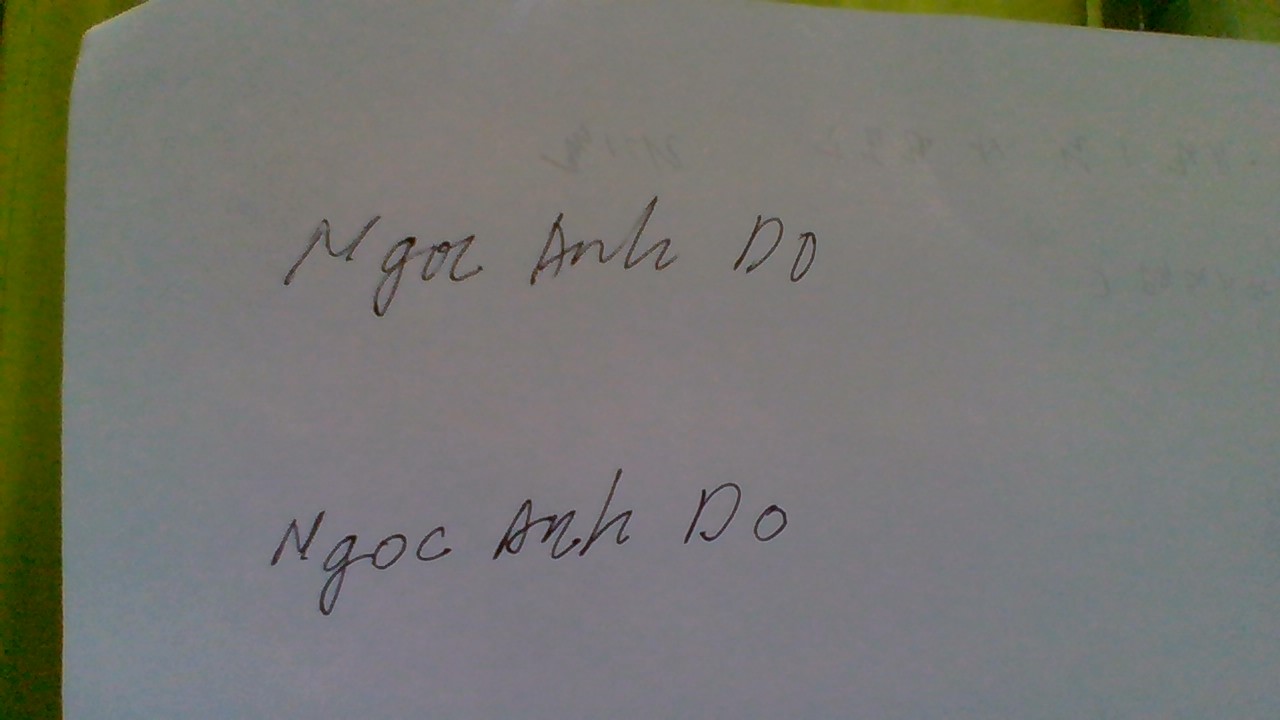 Ngoc Anh Do
Ngoc Anh Do